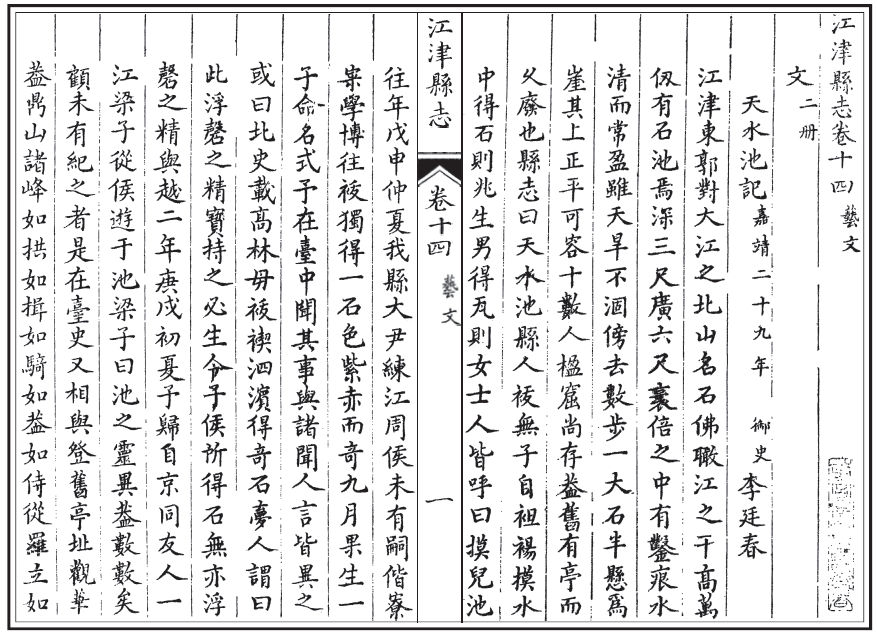 江津縣志卷十四 藝文
文二册
天水池記 嘉靖二十九年 御史 李廷春
江津東郭對大江之北山名石佛瞰江之干高萬
仭有石池焉深三尺廣六尺袤倍之中有鑿痕水
清而常盈雖天旱不涸傍去數步一大石半懸爲
崖其上正平可容十數人楹窟尚存葢舊有亭而
乆廢也縣志曰天水池縣人祓無子自袒裼摸水
中得石則兆生男得瓦則女士人皆呼曰摸兒池
江津縣志 卷十四 藝文 一
往年戊申仲夏我縣大尹練江周侯未有嗣偕寮
寀學博往祓獨得一石色紫赤而奇九月果生一
子命名式予在臺中聞其事與諸聞人言皆異之
或曰北史載高林毋祓禊泗濱得奇石夢人謂曰
此浮磬之精寶持之必生令子侯所得石無亦浮
磬之精與越二年庚戌初夏予歸自京同友人一
江梁子從侯遊于池梁子曰池之靈異葢數數矣
顧未有紀之者是在臺史又相與登舊亭址觀華
葢鼎山諸峰如拱如揖如騎如葢如侍從羅立如